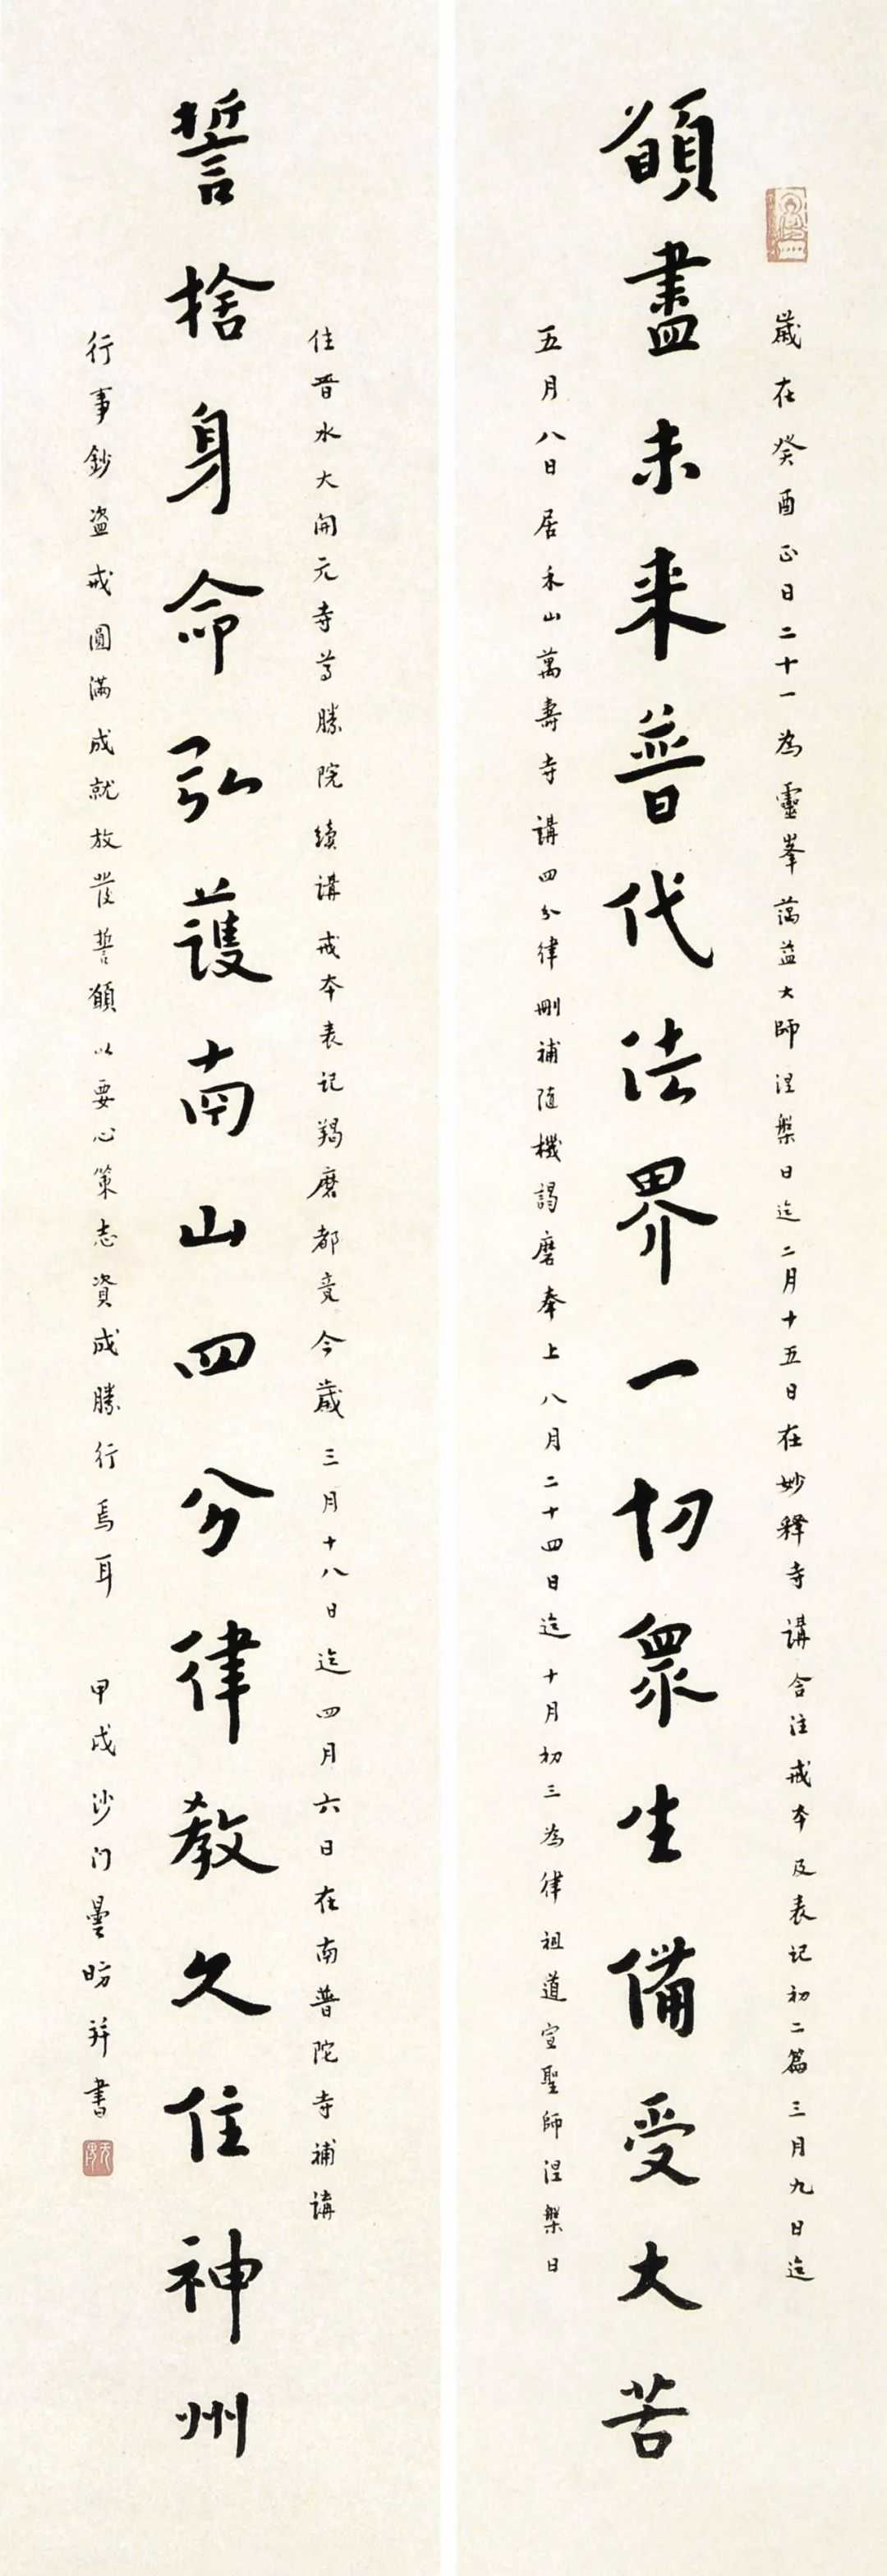 願盡未来普代法界一切眾生備受大苦
歲在癸酉正日二十一為靈峯蕅益大師涅槃日迄二月十五日在妙釋寺講合注戒本及表記初二篇三月九日迄
五月八日居禾山萬壽寺講四分律刪補随機羯磨奉上八月二十四日迄十月初三為律祖道宣聖師涅槃日
誓捨身命弘護南山四分律教久住神州
住晋水大開元寺尊勝院續講戒本表记羯磨都竟今歲三月十八日迄四月六日在南普陀寺補講
行事鈔盗戒圓滿成就放發誓願以要心策志資成勝行焉耳 甲戌沙门曇昉并書